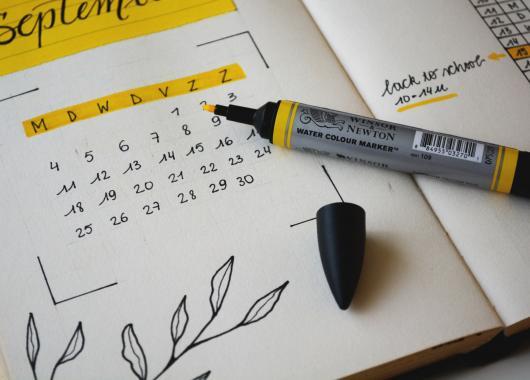 September
M D W D V Z Z
1 2 3
4 5 6 7 8 9
11 12 13 14 15 16 1
18 19 20 21 22 23 24
25 26 27 28 29 30
back to school
10-14u
M
14
15
WINSOR
NEWTON
WATER COLOUR MARKER
109